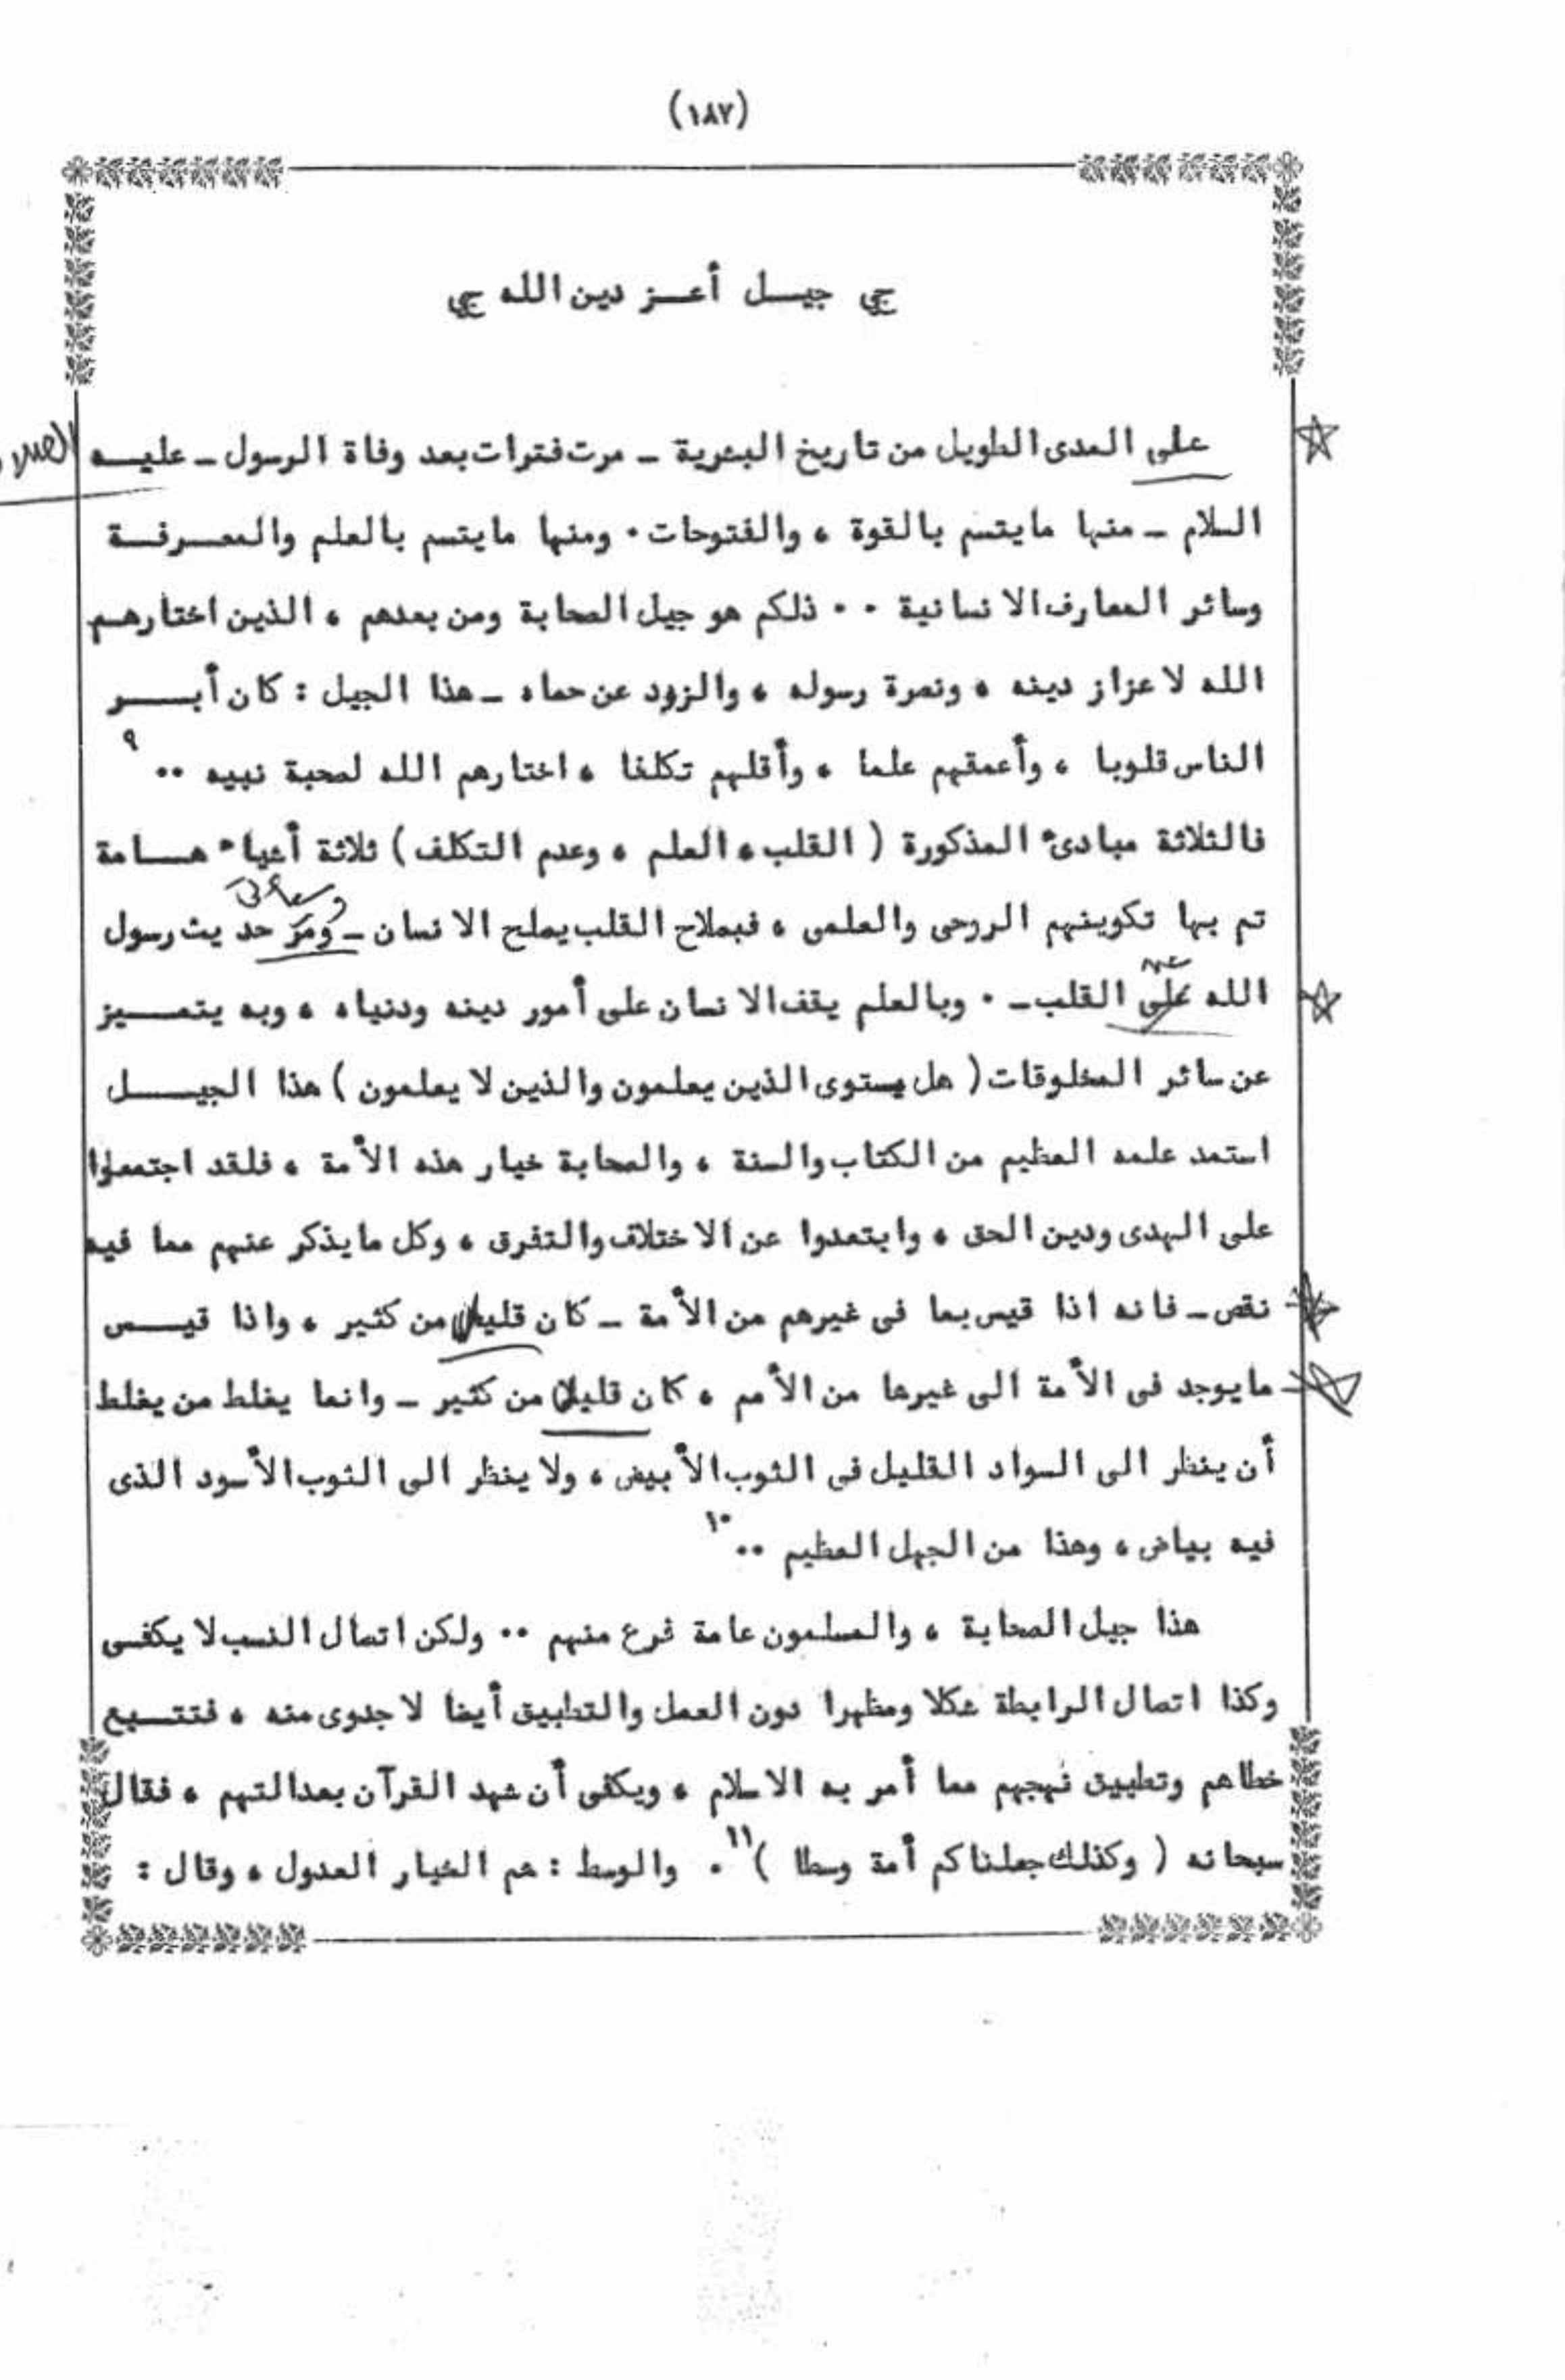 (١٨٧)
جيل أعز دين الله
على المدى الطويل من تاريخ البشرية - مرت فترات بعد وفاة الرسول - عليه
السلام - منها مايتسم بالقوة ، والفتوحات . ومنها مايتسم بالعلم والمعرفة
وسائر المعارف الانسانية .. ذلكم هو جيل الصحابة ومن بعدهم ، الذين اختارهم
الله لاعزاز دينه ، ونصرة رسوله ، والزود عن حماه - هذا الجيل : كان أبر
الناس قلوبا ، وأعمقهم علما ، وأقلهم تكلفا ، اختارهم الله لصحبة نبيه .. ٩
فالثلاثة مبادئ المذكورة ( القلب ، العلم ، وعدم التكلف ) ثلاثة أشياء هامة
تم بها تكوينهم الروحى والعلمى ، فبصلاح القلب يصلح الانسان - ومر حديث رسول
الله على القلب - . وبالعلم يقف الانسان على أمور دينه ودنياه ، وبه يتميز
عن سائر المخلوقات ( هل يستوى الذين يعلمون والذين لا يعلمون ) هذا الجيل
استمد علمه العظيم من الكتاب والسنة ، والصحابة خيار هذه الأمة ، فلقد اجتمعوا
على الهدى ودين الحق ، وابتعدوا عن الاختلاف والتفرق ، وكل مايذكر عنهم مما فيه
نقص - فانه اذا قيس بما فى غيرهم من الأمة - كان قليل من كثير ، واذا قيس
مايوجد فى الأمة الى غيرها من الأمم ، كان قليلا من كثير - وانما يغلط من يغلط
أن ينظر الى السواد القليل فى الثوب الأبيض ، ولا ينظر الى الثوب الأسود الذى
فيه بياض ، وهذا من الجهل العظيم .. ١٠
هذا جيل الصحابة ، والمسلمون عامة فرع منهم .. ولكن اتصال النسب لا يكفى
وكذا اتصال الرابطة شكلا ومظهرا دون العمل والتطبيق أيضا لا جدوى منه ، فتتبع
خطاهم وتطبيق نهجهم مما أمر به الاسلام ، ويكفى أن شهد القرآن بعدالتهم ، فقال
سبحانه ( وكذلك جعلناكم أمة وسطا ) ١١ . والوسط : هم الخيار العدول ، وقال :